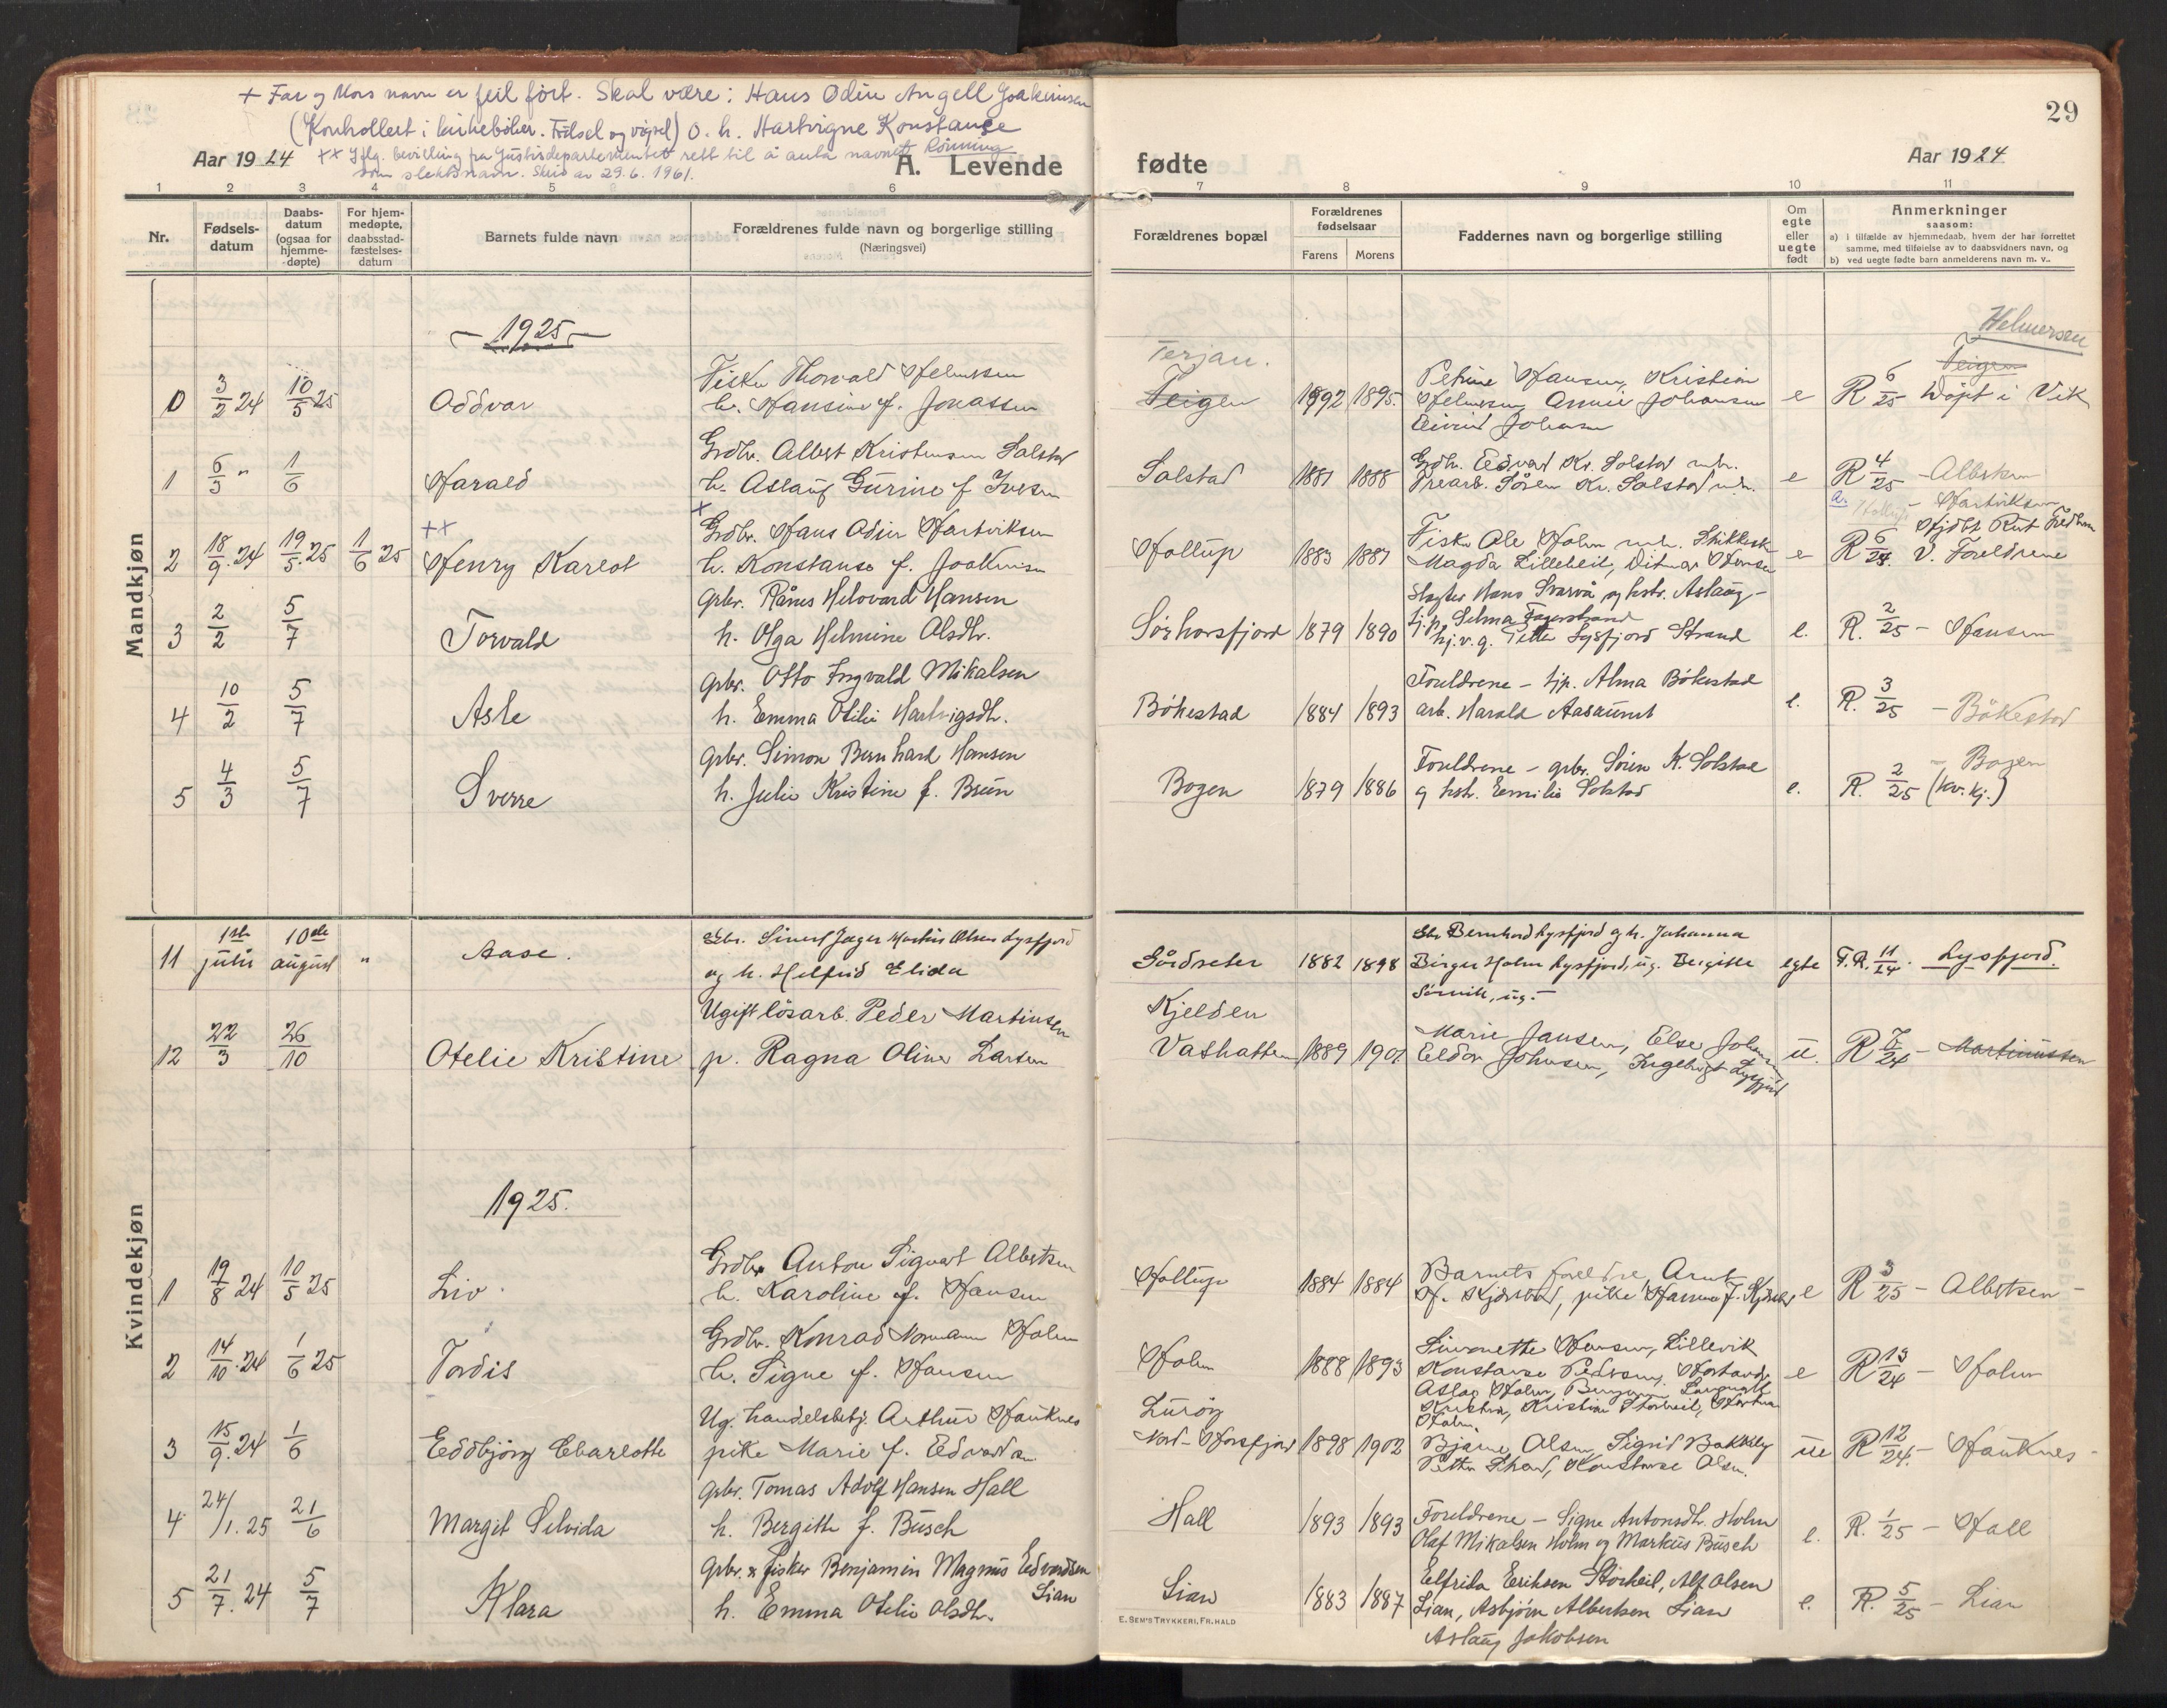 + Far og Mors navn er feil ført. Skal være: Hans Odin Angell Joakimsen
(Kontrollert i kirkebøker. Fødsel og vigsel) o. h. Hartvigne Konstanse
Aar 1924 ++ Iflg. bevilling fra Justisdepartementet rett til å anta navnet Rönning
som slektsnavn. Skriv av 29.6.1961.
A. Levende
fødte
Aar 1924
29
1 2 3 4 5 6 7 8 9 10 11
Nr.
Fødsels-
datum
Daabs-
datum
(ogsaa for
hjemme-
døpte)
For hjem-
medøpte,
daabsstad-
fæstelses-
datum
Barnets fulde navn
Forældrenes fulde navn og borgerlige stilling
(Næringsvei)
Forældrenes bopæl
Forældrenes
fødselsaar
Farens Morens
Faddernes navn og borgerlige stilling
Om
egte
eller
uegte
født
Anmerkninger
saasom:
a) i tilfælde av hjemmedaab, hvem der har forrettet
samme, med tilføielse av to daabsvidners navn, og
b) ved uegte fødte barn anmelderens navn m. v..
Mandkjøn
1925
Helmersen
Terjan.
Fisker Thorvald Helmersen Petrine Hansen, Kristian Teigen
0 3/2 24 10/5 25 Oddvar h. Hansine f. Jonassen Teigen 1892 1895. Helmersen, Annie Johansen e R 6/25 Døpt i Vik
Eivind Johansen
Grdbr. Albert Kristensen Solstad Grdbr. Edvard Kr. Solstad m.h.
1 6/3 " 1/6 Harald h. Aslaug Gurine f. Iversen Solstad 1881 1888 Trearb. Sören Kr. Solstad m.h. e R 4/25 - Albertsen
++ + Grdbr. Hans Odin Hartviksen Fisker Ole Holm m.h. - Hartviksen
2 18/9.24 19/5.25 1/6 25 Henry Karlot h. Konstanse f. Joakimsen Hollup 1883 1887 Magda Lillebeil, Ditmar Hansen e R 6/24. v. Foreldrene
Gbr. Rånes Helovard Hansen Slagter Hans Svarvå og hstr. Aslaug -
tj.p. Selma Fagerstrand
3 2/2 5/7 Torvald h. Olga Helmine Olsdtr. Sörhorsfjord 1879 1890 hj.v.g. Petter Lysfjord Strand e. R. 2/25 - Hansen
Gbr. Otto Ingvald Mikalsen Foreldrene - tjp. Alma Bökestad
4 10/2 5/7 Asle h. Emma Otilie Hartvigsdtr. Bökestad 1884 1893 arb. Harald Aasaunet e. R. 3/25 - Bökestad
Gbr. Simon Bernhard Hansen Foreldrene - gbr. Sören K. Solstad - Bogen
5 4/3 5/7 Sverre h. Julie Kristine f. Bruun Bogen 1879 1886 og hstr. Emilie Solstad e. R. 2/25 (kv.kj.)
Kvindekjøn
Gbr. Sivert Jæger Martin Olsen Lysfjord Gbr Bernhard Lysfjord og h. Johanna
11 1ste juli 10de august " Aase. og h. Helfrid Elida Sördseter 1882 1898 Birger Holm Lysfjord, ug. Bergitte egte F.R. 11/24. Lysfjord.
Sörvik, ug. -
Ugift lösarb. Peder Martinsen Kjelden
12 22/3 26/10 Otelie Kristine p. Ragna Oline Larsen Vathatten 1889 1901 Marie Jansen, Else Johansen u. R 7/24 - Martinussen
Eldor Johnsen, Ingeborg Lysfjord
1925.
Grdbr Anton Sigvart Albertsen Barnets foreldre, Arnt
1 19/8 24 10/5 25 Liv h. Karoline f. Hansen Hollup 1884 1884 e R 3/25 - Albertsen -
Grdbr. Konrad Normann Holm Simonette Hansen, Lillevik
2 14/10.24 1/6 25 Tordis h. Signe f. Hansen Holm 1888 1893 Konstanse Pedersen, e R 13/24 - Holm
Aslag Holm,
Ug. handelsbetj. Arthur Hauknes Luröy Holm.
3 15/9.24 1/6 Eddbjörg Charlotte pike Marie f. Edvardsen Nord-Horsfjord 1898 1902 Bjarne Olsen, Sigrid Bakkely ue R 12/24. - Hauknes -
Petter Strand, Konstanse Olsen.
Gbr. Tomas Adolf Hansen Hall
4 24/1.25 21/6 Margit Selvida h. Bergitte f. Busch Hall 1893 1893 Foreldrene - Signe Antonsdtr. Holm e. R. 1/25 - Hall
Olaf Mikalsen Holm og Markus Busch
Gbr. & fisker Benjamin Magnus Edvardsen Lian Elfrida Eriksen Storheil, Alf Olsen
5 21/7.24 5/7 Klara h. Emma Otelie Olsdtr. Lian 1883 1887 Lian, Asbjörn Albertsen Lian e. R. 5/25 - Lian
Aslaug Jakobsen
E. SEM'S TRYKKERI, FR.HALD